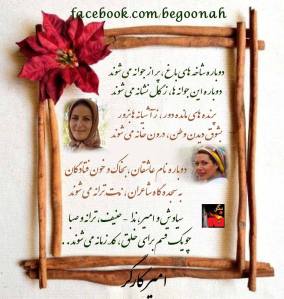 facebook.com/begoonah
دوباره شاخه های باغ، پر از جوانه می شوند
دوباره این جوانه ها، ز گل نشانه می شوند
پرنده های مانده دور، ز آشیانه ها بزور
بشوق دیدن وطن، درون خانه می شوند
دوباره نام عاشقان، بخاک و خون فتادگان
به سجده گاه شاعران، بیت ترانه می شوند
سیاوش و امیر، ندا، حنیف، ترانه و صبا
چو یک قسم برای خلق، کلمه زمانه می شوند...
امیر کارگر